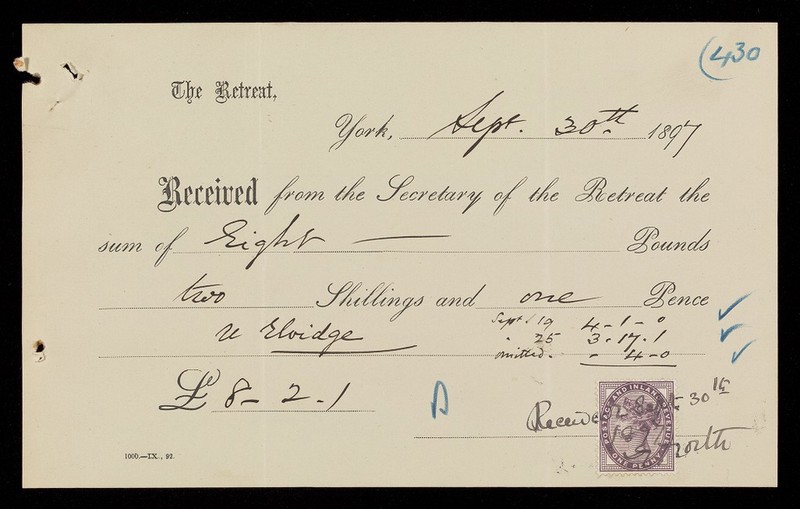 (430
The Retreat,
York, Sept. 30th. 1897
Received from the Secretary of the Retreat the
sum of Eight — Pounds
two Shillings and one Pence
Sept 19 4-1-0
" 25 3.17.1
omitted. - 4-0
Elvidge
£ 8-2.1
A
Received 30th
POSTAGE AND INLAND REVENUE
ONE PENNY
1000.—IX., 92.